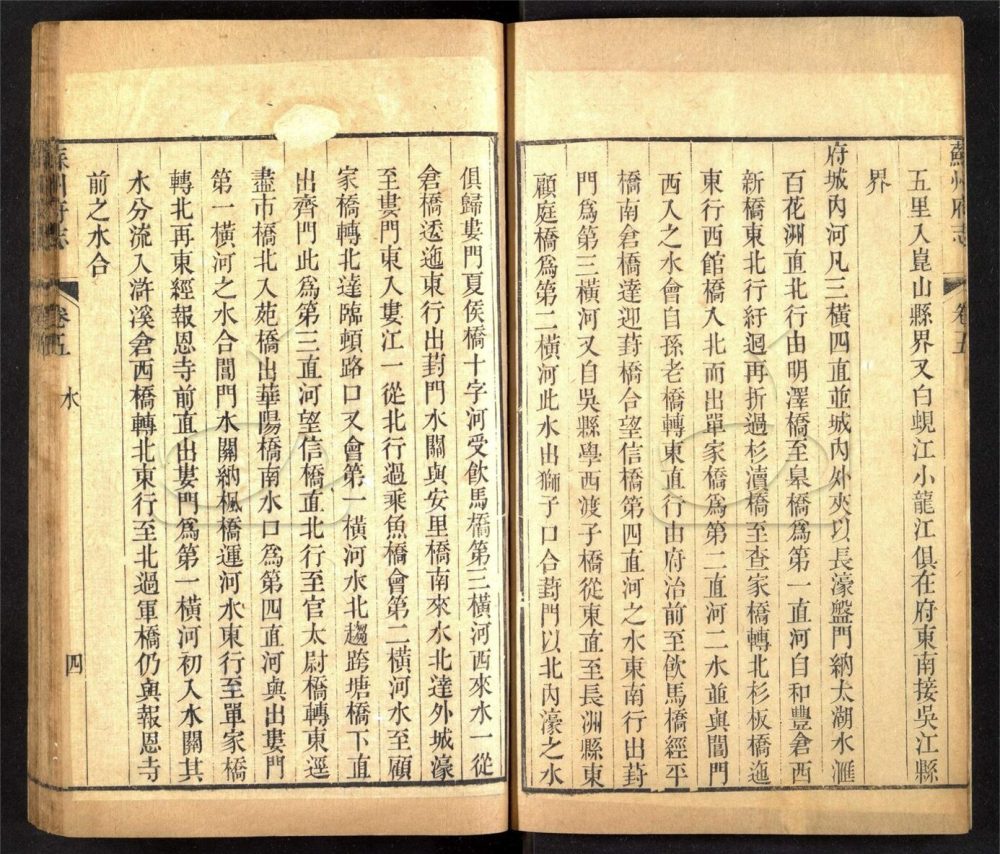 蘇州府志 卷五
五里入崑山縣界又白蜆江小龍江俱在府東南接吳江縣
界
府城內河凡三橫四直並城內外夾以長濠盤門納太湖水滙
百花洲直北行由明澤橋至皋橋爲第一直河自和豐倉西
新橋東北行紆迴再折過杉瀆橋至查家橋轉北杉板橋迤
東行西館橋入北而出單家橋爲第二直河二水並與閶門
西入之水會自孫老橋轉東直行由府治前至飲馬橋經平
橋南倉橋達迎葑橋合望信橋第四直河之水東南行出葑
門爲第三橫河又自吳縣學西渡子橋從東直至長洲縣東
顧庭橋爲第二橫河此水出獅子口合葑門以北內濠之水
俱歸婁門夏侯橋十字河受飲馬橋第三橫河西來水一從
倉橋逶迤東行出葑門水關與安里橋南來水北達外城濠
至婁門東入婁江一從北行過乘魚橋會第二橫河水至顧
家橋轉北達臨頓路口又會第一橫河水北趨跨塘橋下直
出齊門此爲第三直河望信橋直北行至官太尉橋轉東逕
盡市橋北入苑橋出華陽橋南水口爲第四直河與出婁門
第一橫河之水合閶門水關納楓橋運河水東行至單家橋
轉北再東經報恩寺前直出婁門爲第一橫河初入水關其
水分流入滸溪倉西橋轉北東行至北過軍橋仍與報恩寺
前之水合
蘇州府志 卷五 水 四